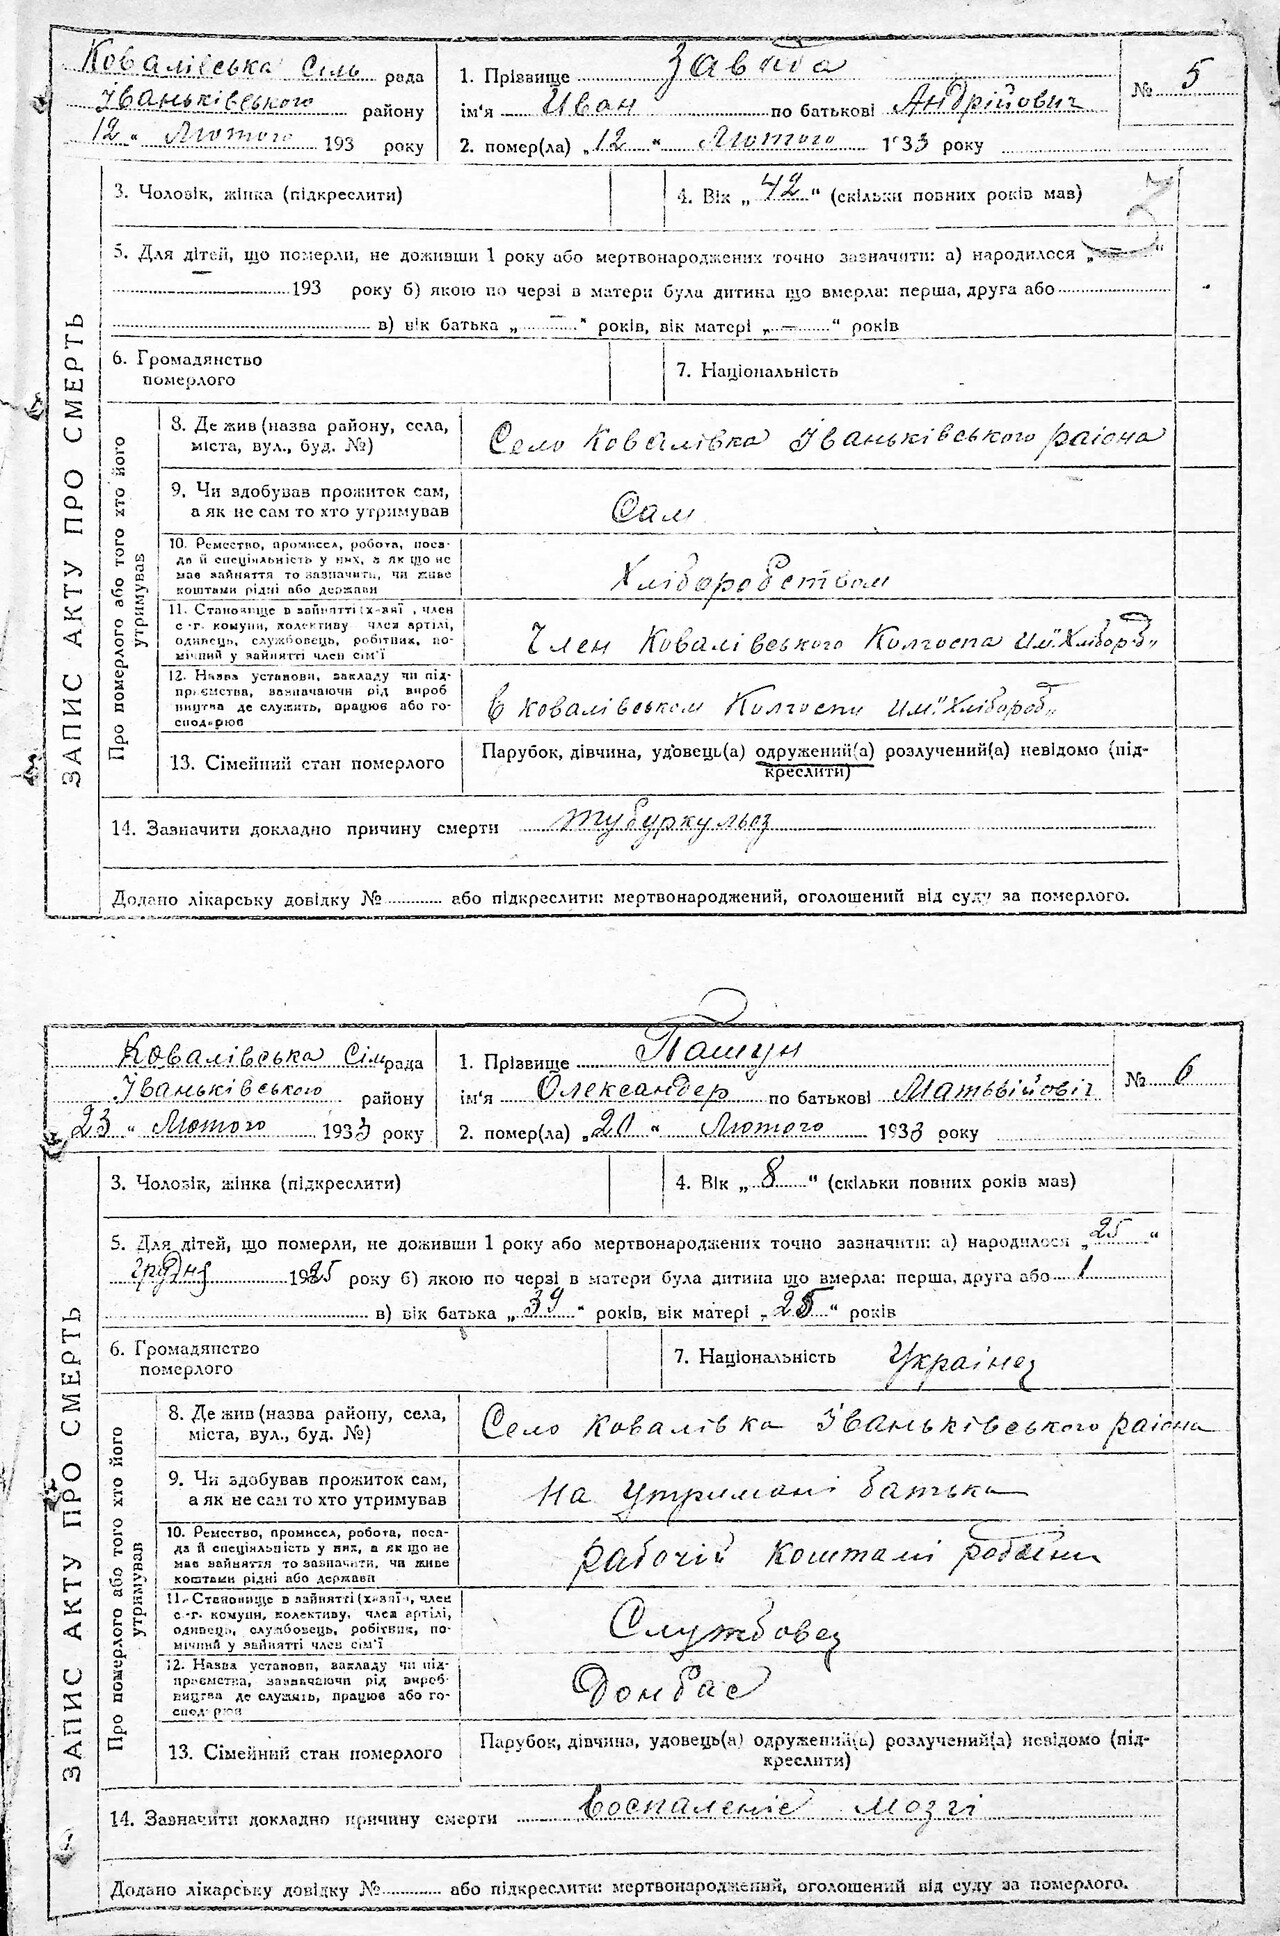 Ковалівська Сель рада
Іваньківського району
12 " Лютого 193 року
1. Прізвище Завада
ім'я Иван по батькові Андрійович
2. помер(ла) „12 " Лютого 1933 року
№ 5
ЗАПИС АКТУ ПРО СМЕРТЬ
3. Чоловік, жінка (підкреслити)
4. Вік „ 42 " (скільки повних років мав)
5. Для дітей, що померли, не доживши 1 року або мертвонароджених точно зазначити: а) народилося „ — "
— 193 року б) якою по черзі в матери була дитина що вмерла: перша, друга або
в) вік батька „ — " років, вік матері „ — " років
6. Громадянство
померлого
7. Національність
Про померлого або того хто його
утримував
8. Де жив (назва району, села,
міста, вул., буд. №)
Село Ковалівка Іваньківського раіона
9. Чи здобував прожиток сам,
а як не сам то хто утримував
Сам
10. Ремество, промисел, робота, поса-
да й спеціяльність у них, а як що не
має зайняття то зазначить, чи живе
коштами рідні або держави
Хліборобством
11. Становище в зайнятті (х-зяї , член
с -г. комуни, колективу член артілі,
одинець, службовець, робітник, по-
мічний у зайнятті член сім'ї
Член Ковалівського Колгоспа им. "Хлібороб"
12. Назва установи, закладу чи під-
приємства, зазначаючи рід вироб
ництва де служить, працює або го-
сподарює
в Ковалівськом Колгоспи им. "Хлібороб"
13. Сімейний стан померлого
Парубок, дівчина, удовець(а) одружений(а) розлучений(а) невідомо (під-
креслити)
14. Зазначити докладно причину смерти тубуркульоз
Додано лікарську довідку № або підкреслити: мертвонароджений, оголошений від суду за померлого.
Ковалівська Сіль рада
Іваньківського району
23 " Лютого 1933 року
1. Прізвище Пашун
ім'я Олександер по батькові Матьвійовіч
2. помер(ла) „20 " Лютого 1933 року
№ 6
ЗАПИС АКТУ ПРО СМЕРТЬ
3. Чоловік, жінка (підкреслити)
4. Вік „ 8 " (скільки повних років мав)
5. Для дітей, що померли, не доживши 1 року або мертвонароджених точно зазначити: а) народилося „25 "
грудня 1925 року б) якою по черзі в матери була дитина що вмерла: перша, друга або 1
в) вік батька „ 39 " років, вік матері „ 25 " років
6. Громадянство
померлого
7. Національність Украінец
Про померлого або того хто його
утримував
8. Де жив (назва району, села,
міста, вул., буд. №)
Село Ковалівка Іваньківського раіона
9. Чи здобував прожиток сам,
а як не сам то хто утримував
На утримані батька
10. Ремество, промисел, робота, поса-
да й спеціяльність у них, а як що не
має зайняття то зазначити, чи живе
коштами рідні або держави
рабочій коштамі
11. Становище в зайнятті (х-зяїн, член
с -г. комуни, колективу, член артілі,
одинець, службовець, робітник, по-
мічний у зайнятті член сім'ї
Службовец
12. Назва установи, закладу чи під-
приємства, зазначаючи рід вироб-
ництва де служить, працює або го-
сподарює
Донбас
13. Сімейний стан померлого
Парубок, дівчина, удовець(а) одружений(а) розлучений(а) невідомо (під-
креслити)
14. Зазначити докладно причину смерти Воспаленіє мозгі
Додано лікарську довідку № або підкреслити: мертвонароджений, оголошений від суду за померлого.